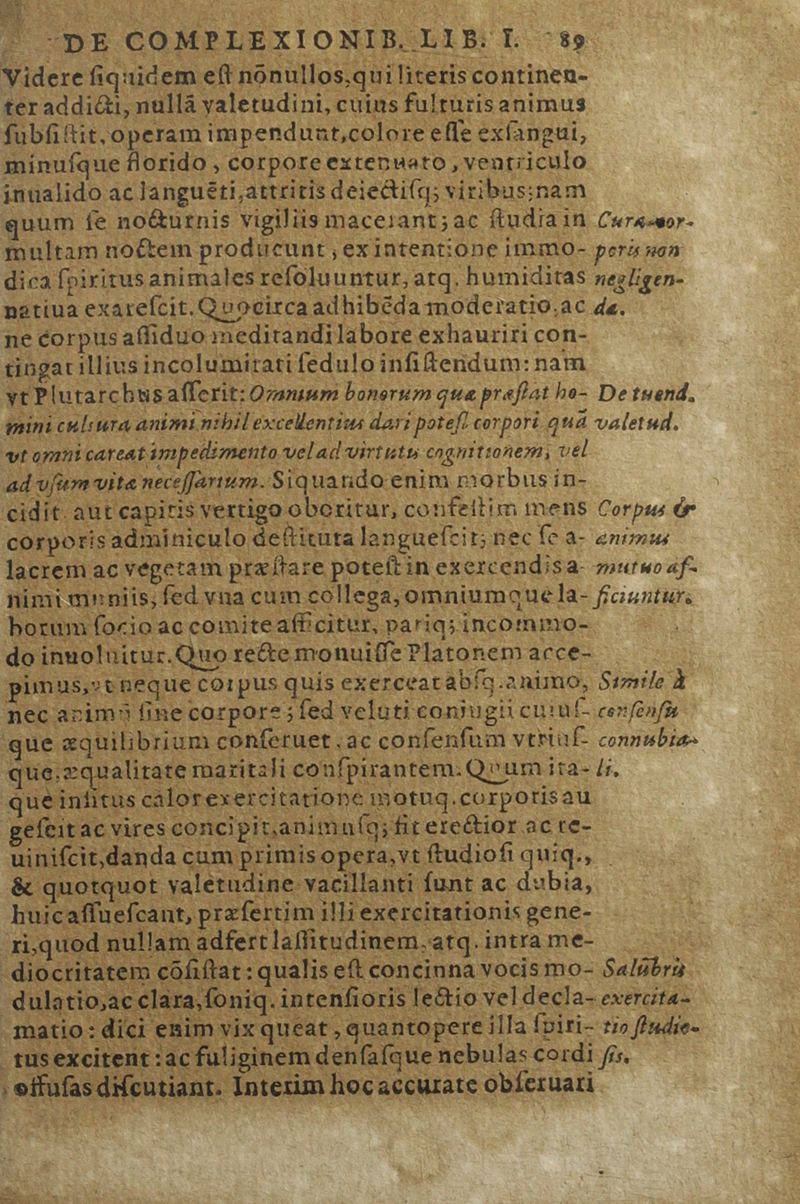 DE COMPLEXIONIB. LIB. I. 89
Videre ſiquidem eſt nōnullos, qui literis continen-
ter addicti, nullā valetudini, cuius fulturis animus
ſubſiſtit, operam impendunt, colore eſſe exſangui,
minuſque florido, corpore extenuato, ventriculo
inualido ac languēti, attritis deiectiſq; viribus; nam
quum ſe nocturnis vigiliis macerant; ac ſtudia in Cura cor-
multam noctem producunt, ex intentione immo- poris non
dica ſpiritus animales reſoluuntur, atq. humiditas negligen-
natiua exareſcit. Quocirca adhibēda moderatio, ac da.
ne corpus aſſiduo meditandi labore exhauriri con-
tingat illius incolumitati ſedulo inſiſtendum: nam
vt Plutarchus aſſerit: Omnium bonorum quæ præſtat ho- De tuend.
mini cultura animi nihil excellentius dari poteſt corpori quā valetud.
vt omni careat impedimento vel ad virtutis cognitionem, vel
ad vſum vitæ neceſſarium. Siquando enim morbus in-
cidit aut capitis vertigo oboritur, confeſtim mens Corpus &
corporis adminiculo deſtituta langueſcit; nec ſe a- animus
lacrem ac vegetam præſtare poteſt in exercendis a- mutuo af-
nimi muniis, ſed vna cum collega, omniumque la- ficiuntur.
borum ſocio ac comite afficitur, pariq; incommo-
do inuoluitur. Quo recte monuiſſe Platonem acce-
pimus, vt neque corpus quis exerceat abſq. animo, Simile à
nec animū ſine corpore; ſed veluti coniugii cuiuſ- conſenſu
que æquilibrium conſeruet, ac conſenſum vtriuſ- connubia-
que, æqualitate maritali conſpirantem. Quum ita- li.
que inſitus calor exercitatione motuq. corporis au
geſcit ac vires concipit, animuſq; fit erectior ac re-
uiniſcit, danda cum primis opera, vt ſtudioſi quiq.,
& quotquot valetudine vacillanti ſunt ac dubia,
huic aſſueſcant, præſertim illi exercitationis gene-
ri, quod nullam adfert laſſitudinem, atq. intra me-
diocritatem cōſiſtat: qualis eſt concinna vocis mo- Salubris
dulatio, ac clara, ſoniq. intenſioris lectio vel decla- exercita-
matio: dici enim vix queat, quantopere illa ſpiri- tio ſtudio-
tus excitent: ac fuliginem denſaſque nebulas cordi ſis.
offuſas diſcutiant. Interim hoc accurate obſeruari